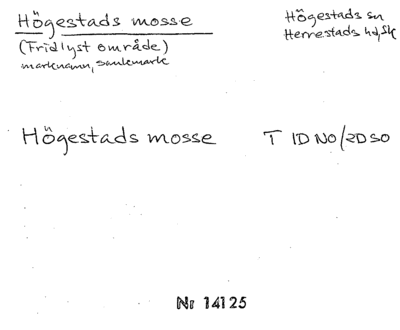 Högestads mosse
(Fridlyst område)
marknamn, sankmark
Högestads sn
Herrestads hd, Sk
Högestads mosse T 1D NO/2D SO
Nr 14125